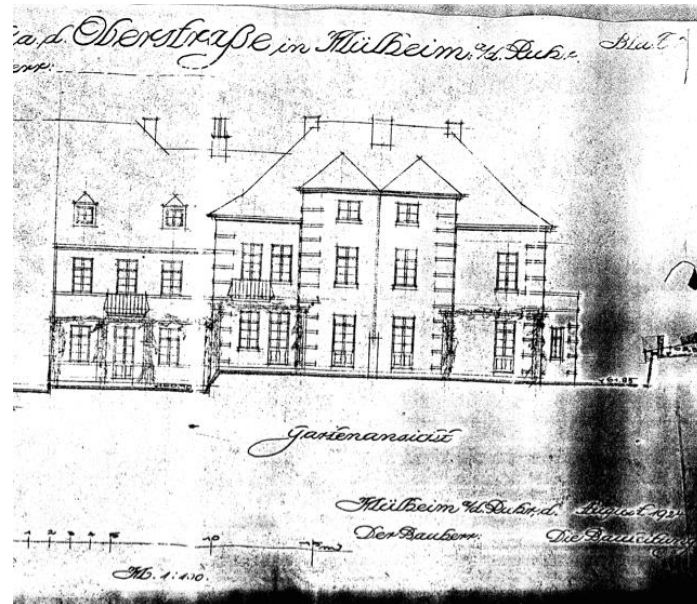 a.d. Oberstraße in Mülheim a/d. Ruhr. Blatt
err:
Gartenansicht
Mülheim a/d. Ruhr, d. August 192
Der Bauherr: Die Bauleitung
1 2 3 4 5 10 15 m
M. 1:100